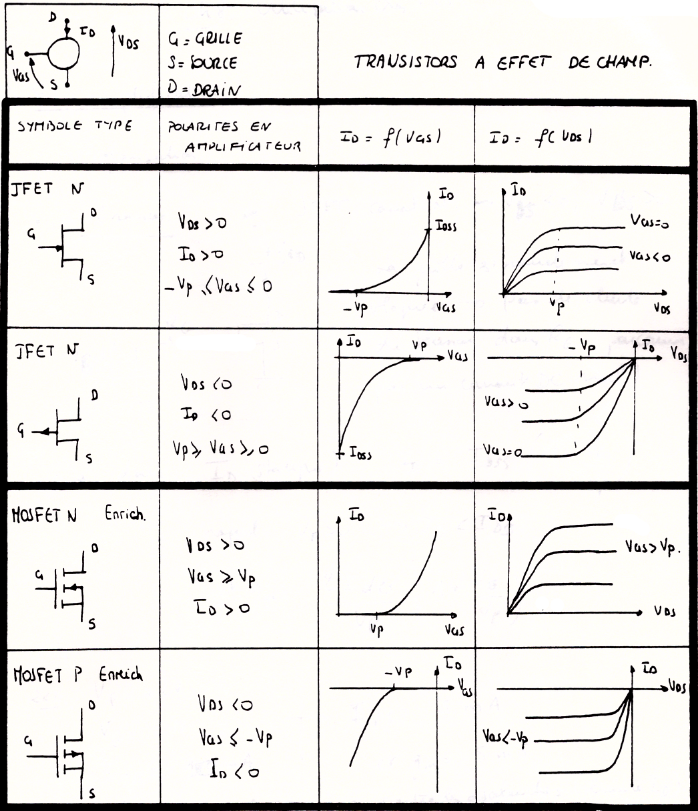 D
I_D
V_DS
G
V_GS
S
G = GRILLE
S = SOURCE
D = DRAIN
TRANSISTORS A EFFET DE CHAMP.
SYMBOLE TYPE
POLARITES EN
AMPLIFICATEUR
I_D = f(V_GS)
I_D = f(V_DS)
JFET N
D
G
S
V_DS > 0
I_D > 0
-V_P ≤ V_GS ≤ 0
I_D
I_DSS
-V_P
V_GS
I_D
V_GS=0
V_GS<0
V_P
V_DS
JFET N
D
G
S
V_DS < 0
I_D < 0
V_P ≥ V_GS ≥ 0
I_D
V_P
V_GS
I_DSS
-V_P
I_D
V_DS
V_GS>0
V_GS=0
MOSFET N Enrich.
D
G
S
V_DS > 0
V_GS ≥ V_P
I_D > 0
I_D
V_P
V_GS
I_D
V_GS > V_P.
V_DS
MOSFET P Enrich
D
G
S
V_DS < 0
V_GS ≤ -V_P
I_D < 0
-V_P
I_D
V_GS
I_D
V_DS
V_GS<-V_P